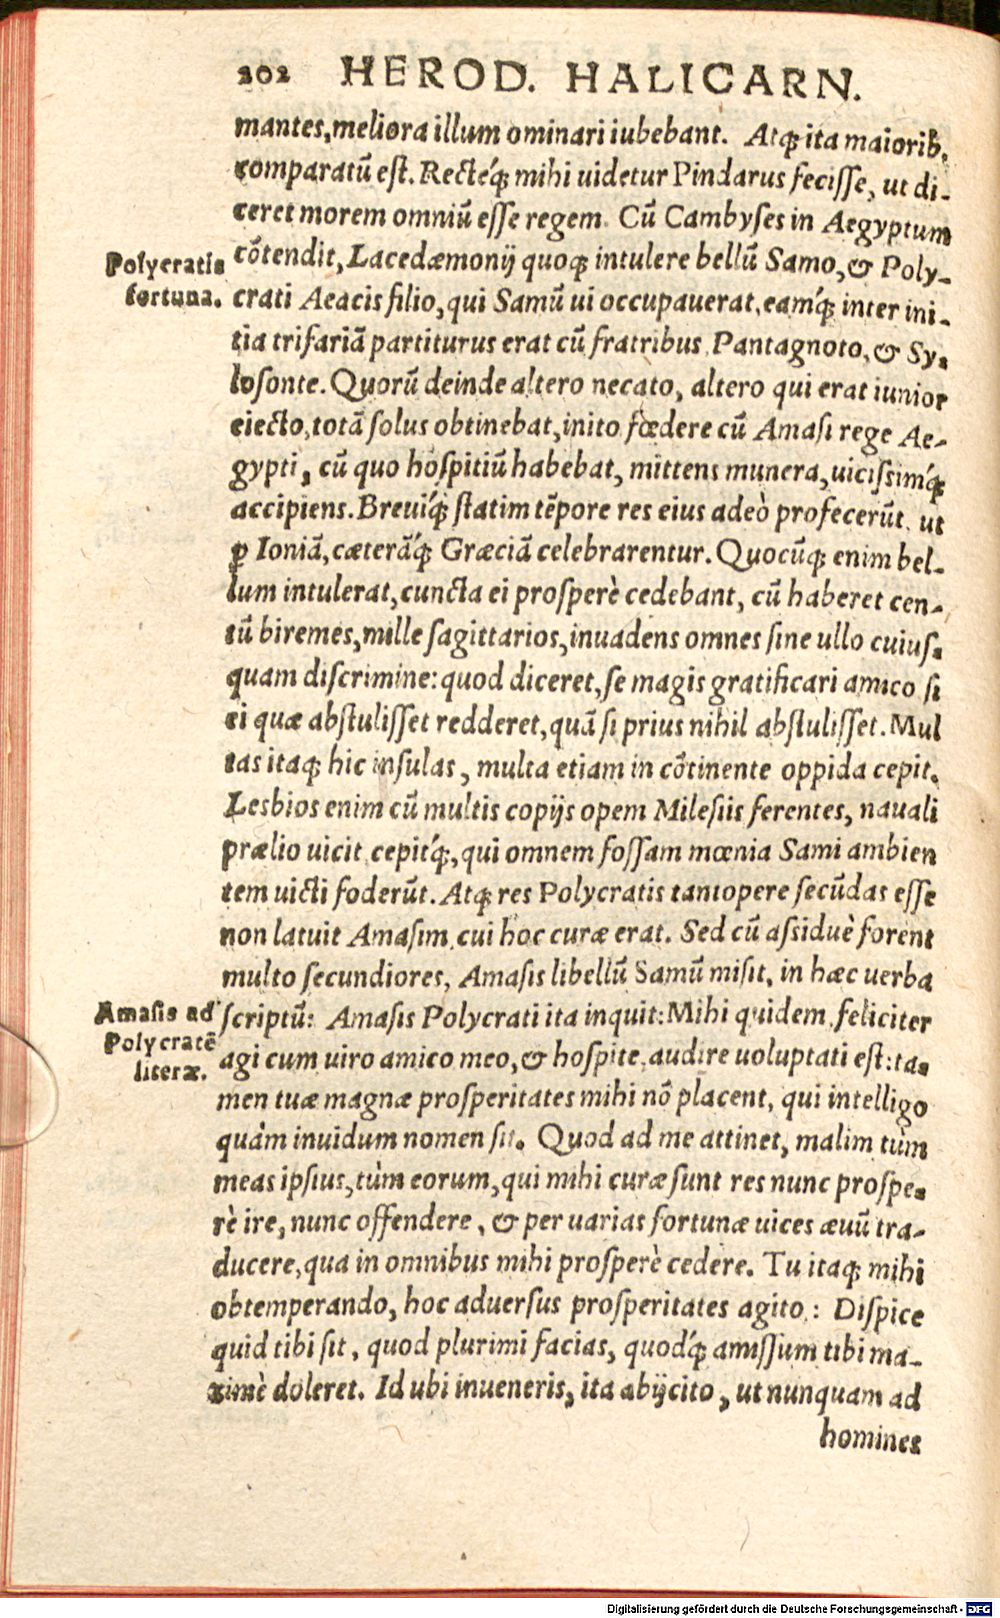 202 HEROD. HALICARN.
mantes, meliora illum ominari iubebant. Atq; ita maiorib.
comparatũ est. Recteq́; mihi uidetur Pindarus fecisse, ut di-
ceret morem omniũ esse regem. Cũ Cambyses in Aegyptum
Polycratis
fortuna.
cõtendit, Lacedæmonij quoq; intulere bellũ Samo, & Poly-
crati Aeacis filio, qui Samũ ui occupauerat, eamq́; inter ini-
tia trifariã partiturus erat cũ fratribus Pantagnoto, & Sy-
losonte. Quorũ deinde altero necato, altero qui erat iunior
eiecto, totã solus obtinebat, inito fœdere cũ Amasi rege Ae-
gypti, cũ quo hospitiũ habebat, mittens munera, uicissimq́;
accipiens. Breuiq́; statim tẽpore res eius adeò profecerũt, ut
ꝑ Ioniã, cæterãq́; Græciã celebrarentur. Quocũq; enim bel-
lum intulerat, cuncta ei prosperè cedebant, cũ haberet cen-
tũ biremes, mille sagittarios, inuadens omnes sine ullo cuius-
quam discrimine: quod diceret, se magis gratificari amico si
ei quæ abstulisset redderet, quã si prius nihil abstulisset. Mul
tas itaq; hic insulas, multa etiam in cõtinente oppida cepit.
Lesbios enim cũ multis copijs opem Milesiis ferentes, nauali
prælio uicit cepitq́;, qui omnem fossam mœnia Sami ambien
tem uicti foderũt. Atq; res Polycratis tantopere secũdas esse
non latuit Amasim, cui hoc curæ erat. Sed cũ assiduè forent
multo secundiores, Amasis libellũ Samũ misit, in hæc uerba
Amasis ad
Polycratẽ
literæ.
scriptũ: Amasis Polycrati ita inquit: Mihi quidem, feliciter
agi cum uiro amico meo, & hospite, audire uoluptati est: ta-
men tuæ magnæ prosperitates mihi nõ placent, qui intelligo
quàm inuidum nomen sit. Quod ad me attinet, malim tùm
meas ipsius, tùm eorum, qui mihi curæ sunt res nunc prospe-
rè ire, nunc offendere, & per uarias fortunæ uices æuũ tra-
ducere, qua in omnibus mihi prosperè cedere. Tu itaq; mihi
obtemperando, hoc aduersus prosperitates agito: Dispice
quid tibi sit, quod plurimi facias, quodq́; amissum tibi ma-
ximè doleret. Id ubi inueneris, ita abijcito, ut nunquam ad
homines
Digitalisierung gefördert durch die Deutsche Forschungsgemeinschaft - DFG